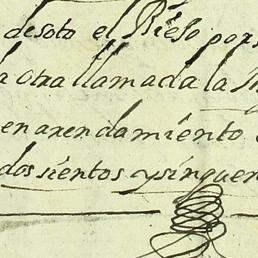 desoto el Rieso por
a otra llamada la
en arendamiento
dos sientos ysinquen